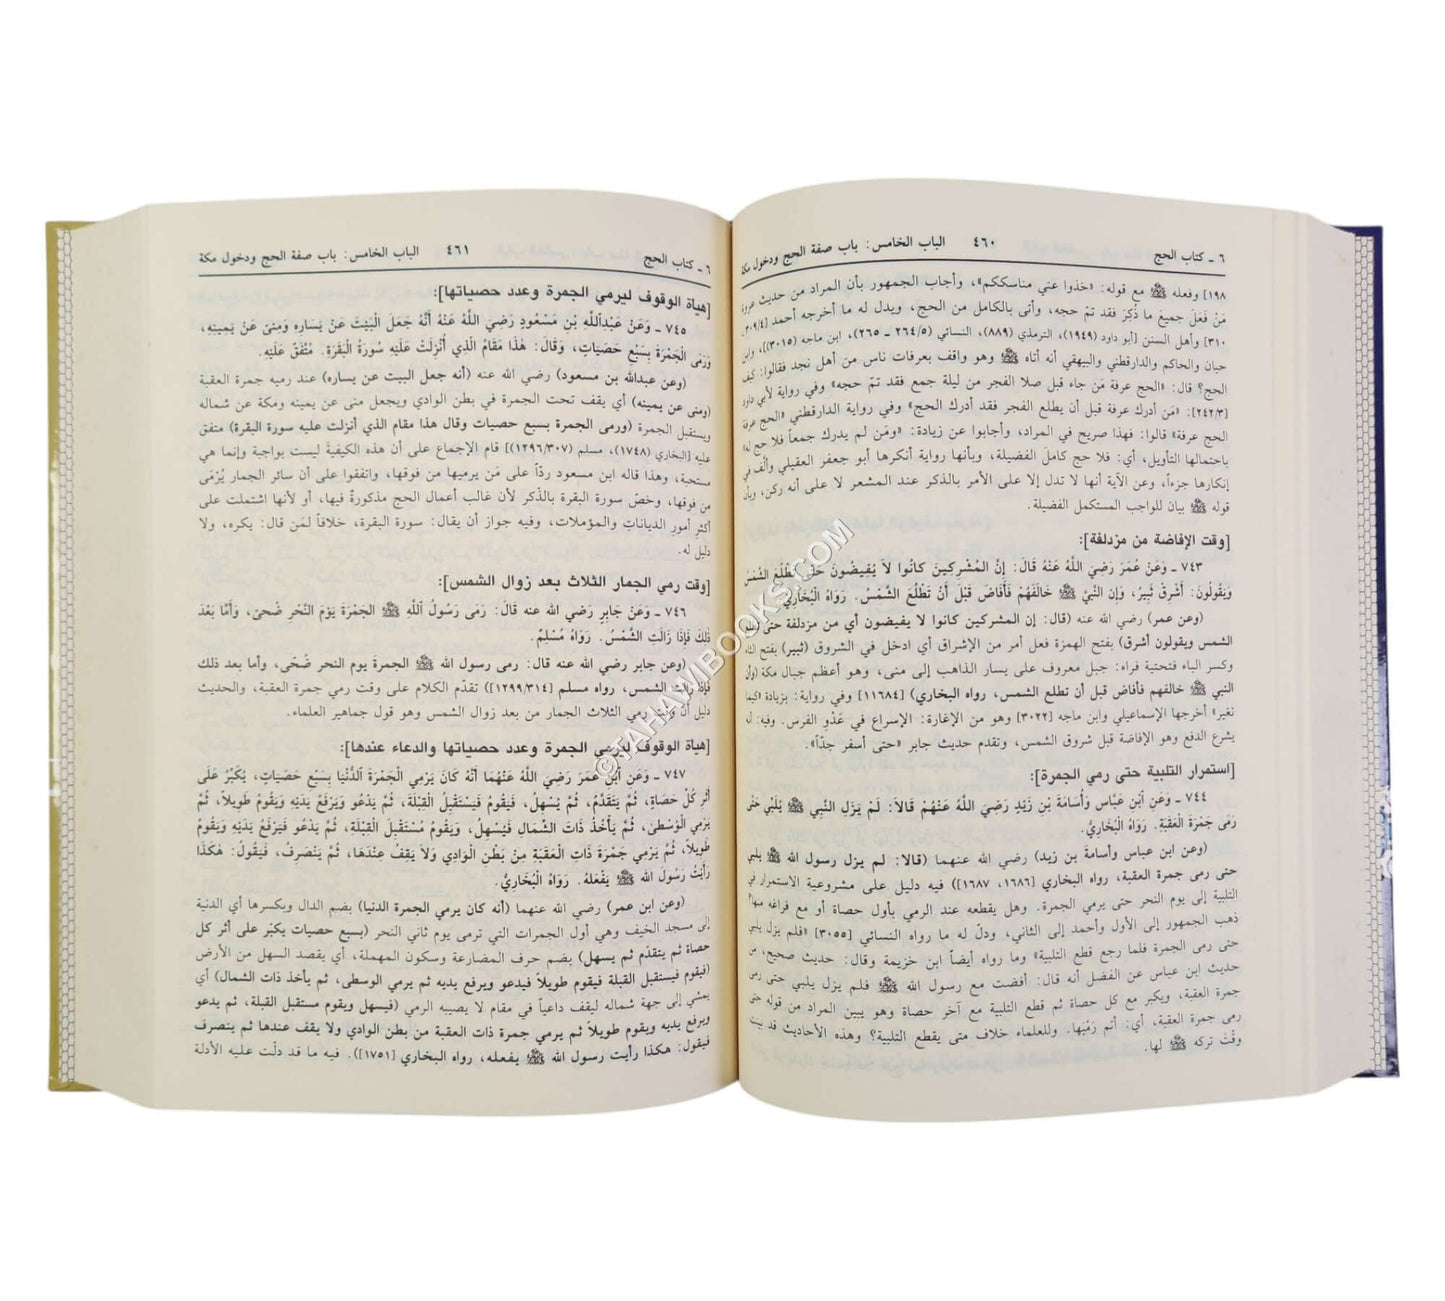 ٦ ـ كتاب الحج ٤٦٠ الباب الخامس: باب صفة الحج ودخول مكة
١٩٨] وفعله ﷺ مع قوله: «خذوا عني مناسككم»، وأجاب الجمهور بأن المراد من حديث عروة
مَنْ فَعَلَ جميعَ ما ذُكِرَ فقد تمّ حجه، وأتى بالكامل من الحج، ويدل له ما أخرجه أحمد [٣٠٩/٤،
٣١٠] وأهل السنن [أبو داود (١٩٤٩)، الترمذي (٨٨٩)، النسائي (٢٦٤/٥ ـ ٢٦٥)، ابن ماجه (٣٠١٥)]، وابن
حبان والحاكم والدارقطني والبيهقي أنه أتاه ﷺ وهو واقف بعرفات ناس من أهل نجد فقالوا: كيف
الحج؟ قال: «الحج عرفة مَن جاء قبل صلا الفجر من ليلة جمع فقد تمّ حجه» وفي رواية لأبي داود
[٢٤٢/٣]: «مَن أدرك عرفة قبل أن يطلع الفجر فقد أدرك الحج» وفي رواية الدارقطني «الحج عرفة
الحج عرفة» قالوا: فهذا صريح في المراد، وأجابوا عن زيادة: «ومَن لم يدرك جمعاً فلا حج له»
باحتمالها التأويل، أي: فلا حج كاملَ الفضيلة، وبأنها رواية أنكرها أبو جعفر العقيلي وألّف في
إنكارها جزءاً، وعن الآية أنها لا تدل إلا على الأمر بالذكر عند المشعر لا على أنه ركن، وبأن
قوله ﷺ بيان للواجب المستكمل الفضيلة.
[وقت الإفاضة من مزدلفة]:
٧٤٣ ـ وَعَنْ عُمَرَ رَضِيَ اللَّهُ عَنْهُ قَالَ: إِنَّ المُشْرِكِينَ كَانُوا لَا يُفِيضُونَ حَتَّى تَطْلُعَ الشَّمْسُ
وَيَقُولُونَ: أَشْرِقْ ثَبِيرُ، وَإِنَّ النَّبِيَّ ﷺ خَالَفَهُمْ فَأَفَاضَ قَبْلَ أَنْ تَطْلُعَ الشَّمْسُ. رَوَاهُ الْبُخَارِيُّ.
(وعن عمر) رضي الله عنه (قال: إن المشركين كانوا لا يفيضون أي من مزدلفة حتى تطلع
الشمس ويقولون أشرق) بفتح الهمزة فعل أمر من الإشراق أي ادخل في الشروق (ثبير) بفتح الثاء
وكسر الباء فتحتية فراء: جبل معروف على يسار الذاهب إلى منى، وهو أعظم جبال مكة (وأن
النبي ﷺ خالفهم فأفاض قبل أن تطلع الشمس، رواه البخاري) [١١٦٨٤] وفي رواية: بزيادة «كيما
نغير» أخرجها الإسماعيلي وابن ماجه [٣٠٢٢] وهو من الإغارة: الإسراع في عَدْوِ الفرس. وفيه: أنه
يشرع الدفع وهو الإفاضة قبل شروق الشمس، وتقدم حديث جابر «حتى أسفر جدّاً».
[استمرار التلبية حتى رمي الجمرة]:
٧٤٤ ـ وَعَنِ ابْنِ عَبَّاسٍ وَأُسَامَةَ بْنِ زَيْدٍ رَضِيَ اللَّهُ عَنْهُمْ قَالَا: لَمْ يَزَلِ النَّبِي ﷺ يُلَبِّي حَتَّى
رَمَى جَمْرَةَ الْعَقَبَةِ. رَوَاهُ الْبُخَارِيُّ.
(وعن ابن عباس وأسامة بن زيد) رضي الله عنهما (قالا: لم يزل رسول الله ﷺ يلبي
حتى رمى جمرة العقبة، رواه البخاري [١٦٨٦، ١٦٨٧]) فيه دليل على مشروعية الاستمرار في
التلبية إلى يوم النحر حتى يرمي الجمرة. وهل يقطعه عند الرمي بأول حصاة أو مع فراغه منها؟
ذهب الجمهور إلى الأول وأحمد إلى الثاني، ودلّ له ما رواه النسائي [٣٠٥٥] «فلم يزل يلبي
حتى رمى الجمرة فلما رجع قطع التلبية» وما رواه أيضاً ابن خزيمة وقال: حديث صحيح، من
حديث ابن عباس عن الفضل أنه قال: أفضت مع رسول الله ﷺ فلم يزل يلبي حتى رمى
جمرة العقبة، ويكبر مع كل حصاة ثم قطع التلبية مع آخر حصاة وهو يبين المراد من قوله حتى
رمى جمرة العقبة، أي: أتم رَمْيَها. وللعلماء خلاف متى يقطع التلبية؟ وهذه الأحاديث قد بينت
وقْتَ تركه ﷺ لها.
٦ ـ كتاب الحج ٤٦١ الباب الخامس: باب صفة الحج ودخول مكة
[هيأة الوقوف ليرمي الجمرة وعدد حصياتها]:
٧٤٥ ـ وَعَنْ عَبْدِاللَّهِ بْنِ مَسْعُودٍ رَضِيَ اللَّهُ عَنْهُ أَنَّهُ جَعَلَ الْبَيْتَ عَنْ يَسَارِهِ وَمِنىً عَنْ يَمِينِهِ،
وَرَمَى الْجَمْرَةَ بِسَبْعِ حَصَيَاتٍ، وَقَالَ: هٰذَا مَقَامُ الَّذِي أُنْزِلَتْ عَلَيْهِ سُورَةُ الْبَقَرَةِ. مُتَّفَقٌ عَلَيْهِ.
(وعن عبدالله بن مسعود) رضي الله عنه (أنه جعل البيت عن يساره) عند رميه جمرة العقبة
(ومنى عن يمينه) أي يقف تحت الجمرة في بطن الوادي ويجعل منى عن يمينه ومكة عن شماله
ويستقبل الجمرة (ورمى الجمرة بسبع حصيات وقال هذا مقام الذي أنزلت عليه سورة البقرة) متفق
عليه [البخاري (١٧٤٨)، مسلم (١٢٩٦/٣٠٧)] قام الإجماع على أن هذه الكيفيةَ ليست بواجبة وإنما هي
مستحبة، وهذا قاله ابن مسعود ردّاً على مَن يرميها من فوقها، واتفقوا على أن سائر الجمار يُرْمَى
من فوقها، وخصّ سورة البقرة بالذّكر لأن غالب أعمال الحج مذكورةٌ فيها، أو لأنها اشتملت على
أكثرِ أمورِ الدياناتِ والمؤملات، وفيه جواز أن يقال: سورة البقرة، خلافاً لمَن قال: يكره، ولا
دليل له.
[وقت رمي الجمار الثلاث بعد زوال الشمس]:
٧٤٦ ـ وَعَنْ جَابِرٍ رَضِي الله عنه قَالَ: رَمَى رَسُولُ اللَّهِ ﷺ الْجَمْرَةَ يَوْمَ النَّحْرِ ضُحىً، وَأَمَّا بَعْدَ
ذٰلِكَ فَإِذَا زَالَتِ الشَّمْسُ. رَوَاهُ مُسْلِمٌ.
(وعن جابر رضي الله عنه قال: رمى رسول الله ﷺ الجمرةَ يوم النحر ضُحًى، وأما بعد ذلك
فإذا زالت الشمس، رواه مسلم [١٢٩٩/٣١٤]) تقدّم الكلام على وقت رمي جمرة العقبة، والحديث
دليل أن وقت رمي الثلاث الجمار من بعد زوال الشمس وهو قول جماهير العلماء.
[هيأة الوقوف ليرمي الجمرة وعدد حصياتها والدعاء عندها]:
٧٤٧ ـ وَعَنِ ابْنِ عمَرَ رَضِيَ اللَّهُ عَنْهُمَا أَنَّهُ كَانَ يَرْمِي الْجَمْرَةَ الدُّنْيَا بِسَبْعِ حَصَيَاتٍ، يُكَبِّرُ عَلَى
أَثَرِ كُلِّ حَصَاةٍ، ثُمَّ يَتَقَدَّمُ، ثُمَّ يُسْهِلُ، فَيَقُومُ فَيَسْتَقْبِلُ الْقِبْلَةَ، ثُمَّ يَدْعُو وَيَرْفَعُ يَدَيْهِ وَيَقُومُ طَوِيلاً، ثُمَّ
يَرْمِي الْوُسْطَى، ثُمَّ يَأْخُذُ ذَاتَ الشِّمَالِ فَيُسْهِلُ، وَيَقُومُ مُسْتَقْبِلَ الْقِبْلَةِ، ثُمَّ يَدْعُو فَيَرْفَعُ يَدَيْهِ وَيَقُومُ
طَوِيلاً، ثُمَّ يَرْمِي جَمْرَةَ ذَاتِ الْعَقَبَةِ مِنْ بَطْنِ الْوَادِي وَلَا يَقِفُ عِنْدَهَا، ثُمَّ يَنْصَرِفُ، فَيَقُولُ: هٰكَذَا
رَأَيْتُ رَسُولَ الله ﷺ يَفْعَلُهُ. رَوَاهُ الْبُخَارِيُّ.
(وعن ابن عمر) رضي الله عنهما (أنه كان يرمي الجمرة الدنيا) بضم الدال وبكسرها أي الدنية
إلى مسجد الخيف وهي أول الجمرات التي ترمى يوم ثاني النحر (بسبع حصيات يكبّر على أثر كل
حصاة ثم يتقدّم ثم يسهل) بضم حرف المضارعة وسكون المهملة، أي يقصد السهل من الأرض
(فيقوم فيستقبل القبلة فيقوم طويلاً فيدعو ويرفع يديه ثم يرمي الوسطى، ثم يأخذ ذات الشمال) أي
يمشي إلى جهة شماله ليقف داعياً في مقام لا يصيبه الرمي (فيسهل ويقوم مستقبل القبلة، ثم يدعو
ويرفع يديه ويقوم طويلاً ثم يرمي جمرة ذات العقبة من بطن الوادي ولا يقف عندها ثم ينصرف
فيقول: هكذا رأيت رسول الله ﷺ يفعله، رواه البخاري [١٧٥١]). فيه ما قد دلّت عليه الأدلة
©TAHAWIBOOKS.COM